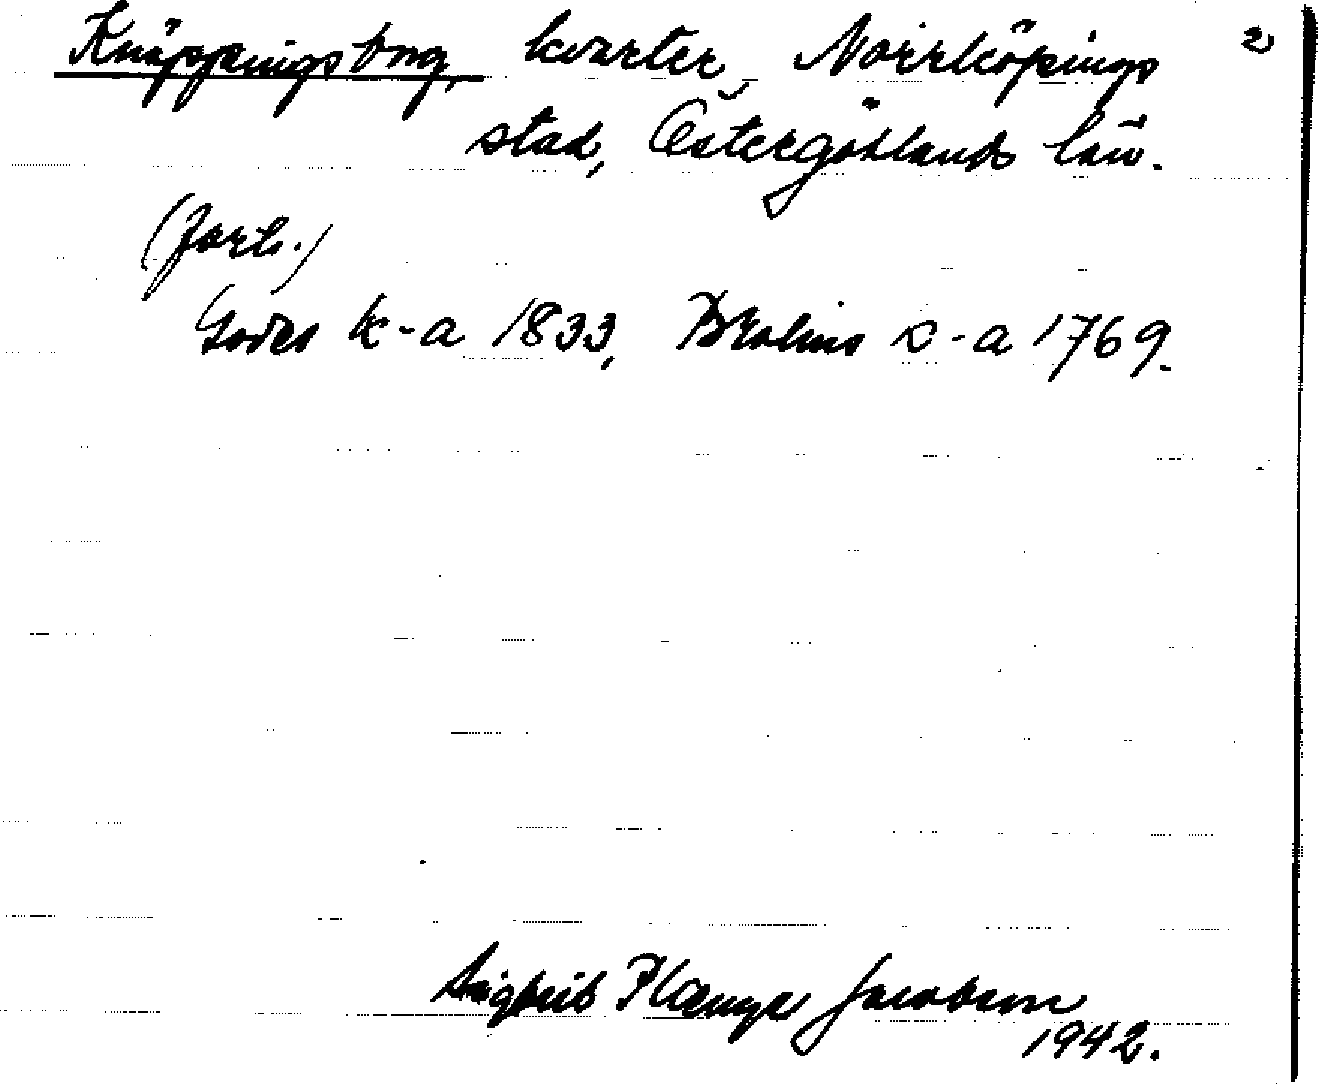 Knäppingsborg, kvarter, Norrköpings 2
stad, Östergötlands län.
(forts.)
Godes k-a 1833, Brolins s-a 1769.
Sigfrid Plænge Jacobson
1942.